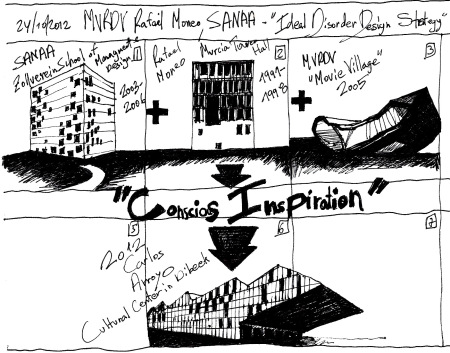 24/10/2012 MVRDV Rafael Moneo SANAA - "Ideal Disorder Design Strategy"
SANAA
Zollverein School of Management & Design
1
2003-
2006
+
Rafael
Moneo
Murcia Town Hall
2
1991-
1998
+
MVRDV
"Movie Village"
2005
3
"Conscios Inspiration"
5
2012
Carlos
Arroyo
Cultural Center in Dilbeek
6
7